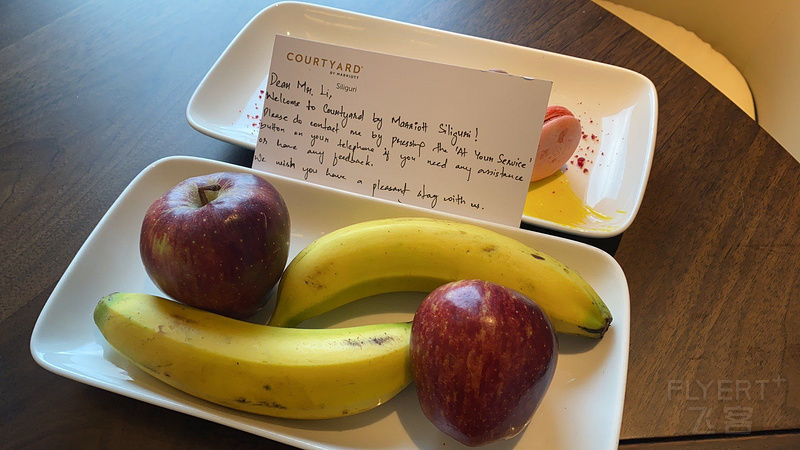 COURTYARD®
BY MARRIOTT
Siliguri
Dear Mr. Li,
Welcome to Courtyard by Marriott Siliguri!
Please do contact me by pressing the 'At Your Service'
button on your telephone if you need any assistance
or have any feedback.
We wish you have a pleasant stay with us.
FLYERT+
飞客